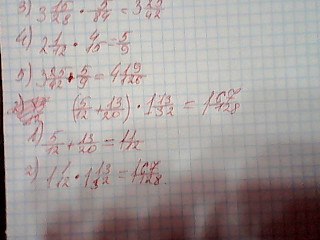 3) 3 15/28 · 5/84 = 3 25/42
4) 2 1/12 · 4/15 = 5/9
5) 3 25/42 + 5/9 = 4 19/126
2) (5/12 + 13/20) · 1 13/32 = 1 67/128
1) 5/12 + 13/20 = 1 1/12
2) 1 1/12 · 1 13/32 = 1 67/128.